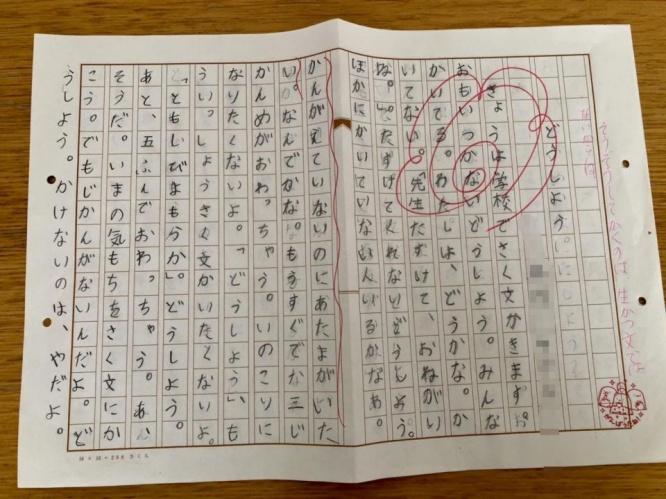 そうぞうしてかくのは、生かつ文では
どうしよう。
きょうは学校でさく文がきます。
おもいつかないどうしよう。みんな
かいてる。わたしは、どうかな。か
いてない。先生たすけて、おねがい
な。」たすけてくれないどうしよう。
ほかにかいていない人いるかなあ。
かんがえていないのにあたまがいた
い。なんでかな。もうすぐで三じ
かんめがおわっちゃう。いのこりに
なりたくないよ。「どうしよう」も
ういっしょうさく文かいたくないよ。
どうしよう。
あと、五ふんでおわっちゃう。あ、
そうだ。いまの気もちをさく文にか
こう。でもじかんがないんだよ。ど
うしよう。かけないのは、やだよ。